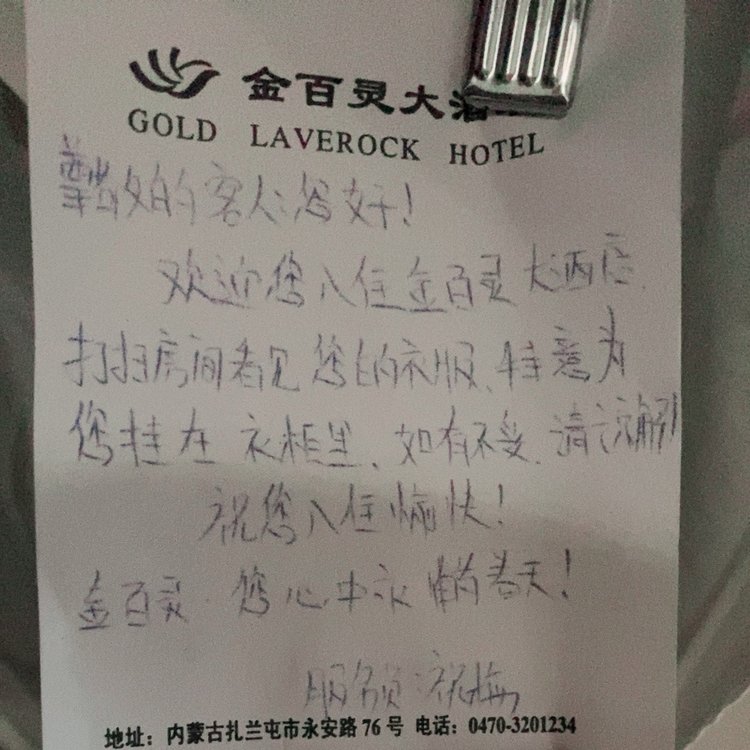 金百灵大酒
GOLD LAVEROCK HOTEL
尊敬的客人：您好！
欢迎您入住金百灵大酒店、
打扫房间看见您的衣服、特意为
您挂在衣柜里、如有不妥、请谅解！
祝您入住愉快！
金百灵·您心中永恒的春天！
服务员：祝梅
地址：内蒙古扎兰屯市永安路 76 号 电话：0470-3201234